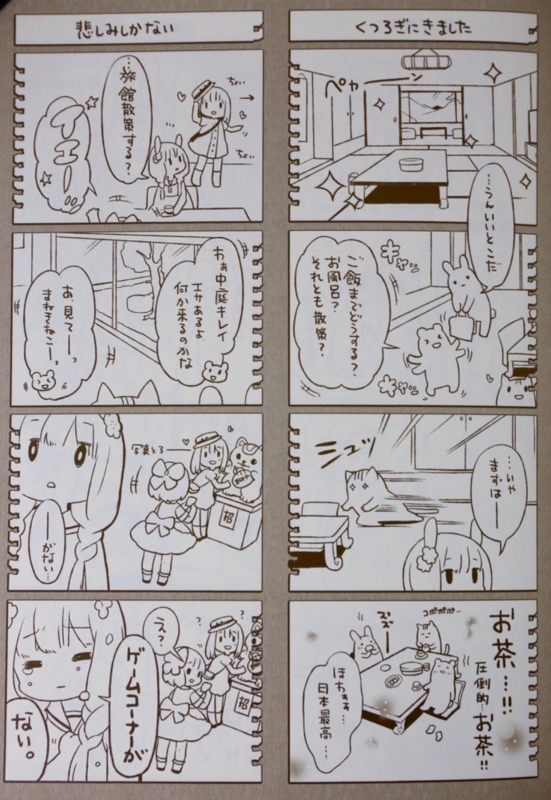 くつろぎにきました
ペャーーン
…うんいいとこだ
ご飯までどうする？
お風呂？
それとも散策？
キャー
キャー
…いや
まずはー
シュッ
お茶…!!
圧倒的お茶!!
コポポポ…
ズズー
ほちゃぁ…
日本最高…
悲しみしかない
…旅館散策する？
ちょい
ちょい
イエーッ
わぁ中庭キレイ
エサあるよ
何か来るのかな
あ、見てーっ
まねきねこーっ
写真とろー
招
…がない…
えっ？
招
ゲームコーナーが
ない。